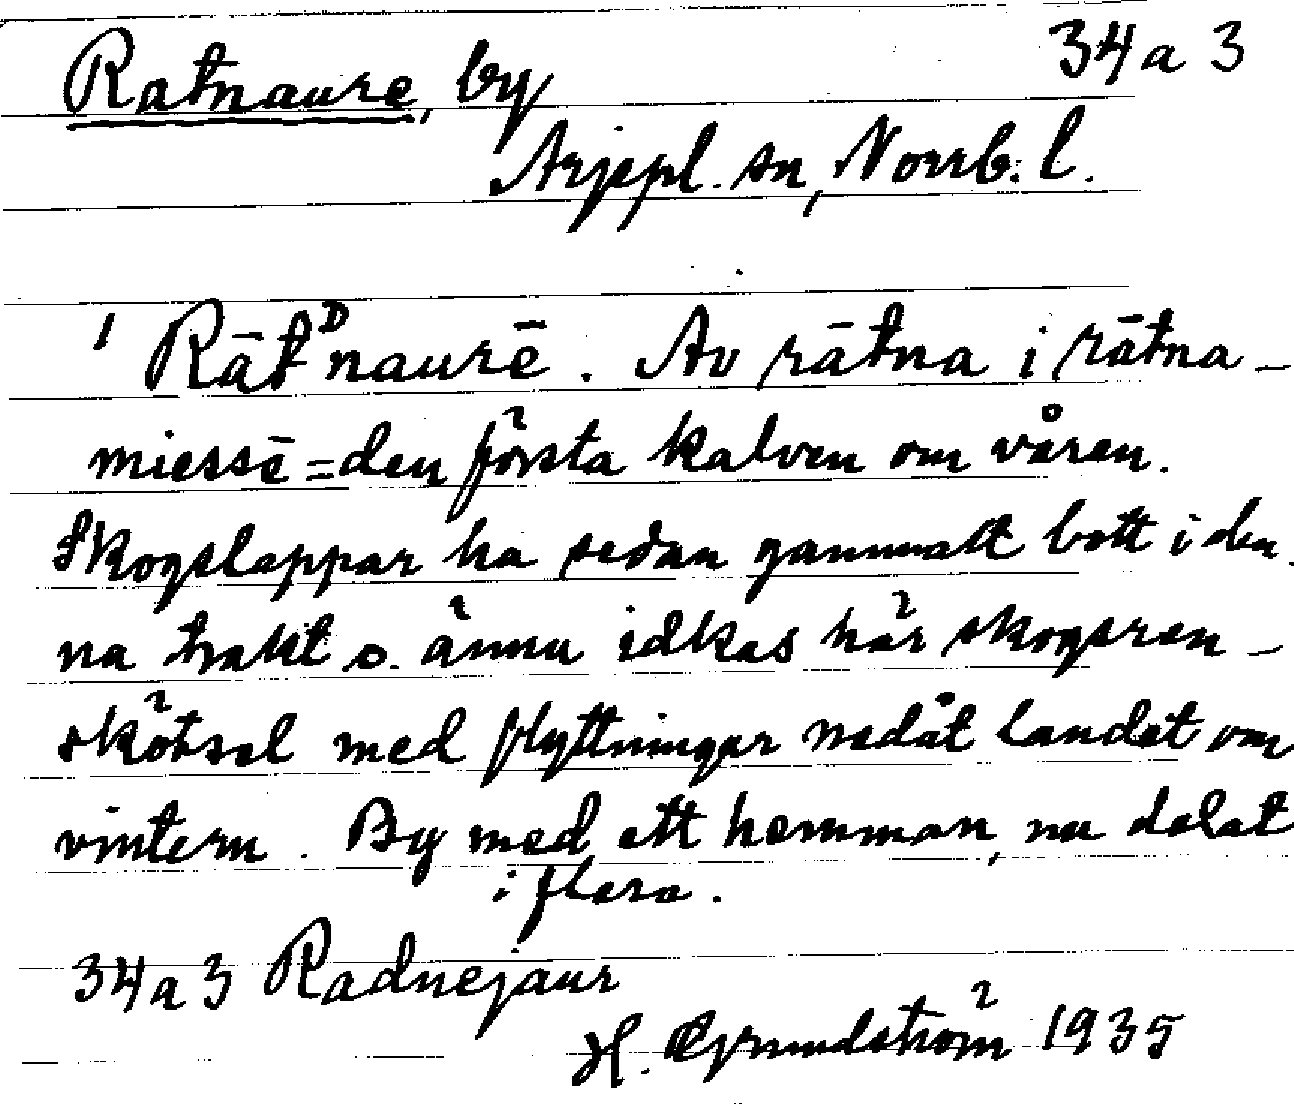 34a3
Ratnaure, by
Arjepl. sn, Norrb. l.
1 Rātᴰnaurē. Av rātna i rātna-
miessē = den första kalven om våren.
Skogslappar ha sedan gammalt bott i den-
na trakt o. ännu idkas här skogsren-
skötsel med flyttningar nedåt landet om
vintern. By med ett hemman, nu delat
i flera.
34a3 Radnejaur
H. Grundström 1935